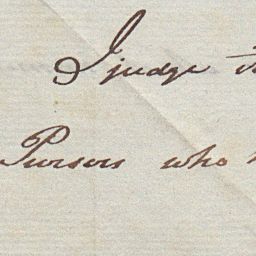 I judge
Pursers who